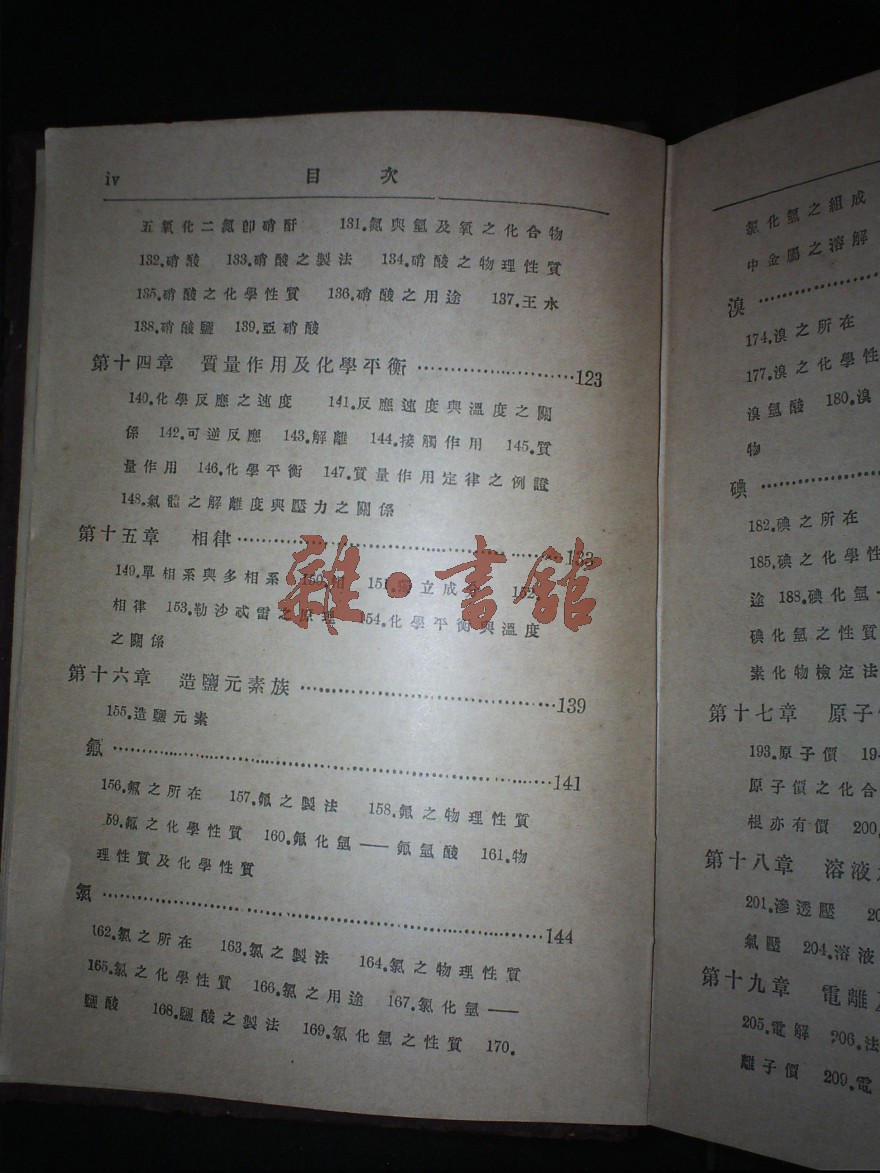 iv 目 次
五氧化二氮卽硝酐 131.氮與氫及氧之化合物
132.硝酸 133.硝酸之製法 134.硝酸之物理性質
135.硝酸之化學性質 136.硝酸之用途 137.王水
138.硝酸鹽 139.亞硝酸
第十四章 質量作用及化學平衡 123
140.化學反應之速度 141.反應速度與溫度之關
係 142.可逆反應 143.解離 144.接觸作用 145.質
量作用 146.化學平衡 147.質量作用定律之例證
148.氣體之解離度與壓力之關係
第十五章 相律 133
149.單相系與多相系 150.相 151.獨立成分 152.
相律 153.勒沙忒雷之原理 154.化學平衡與溫度
之關係
第十六章 造鹽元素族 139
155.造鹽元素
氟 141
156.氟之所在 157.氟之製法 158.氟之物理性質
59.氟之化學性質 160.氟化氫——氟氫酸 161.物
理性質及化學性質
氯 144
162.氯之所在 163.氯之製法 164.氯之物理性質
165.氯之化學性質 166.氯之用途 167.氯化氫——
鹽酸 168.鹽酸之製法 169.氯化氫之性質 170.
雜·書館
氯化氫之組成
中金屬之溶解
溴
174.溴之所在
177.溴之化學性
溴氫酸 180.溴
物
碘
182.碘之所在
185.碘之化學性
途 188.碘化氫
碘化氫之性質
素化物檢定法
第十七章 原子
193.原子價 194
原子價之化合
根亦有價 200.
第十八章 溶液
201.滲透壓 20
氣壓 204.溶液
第十九章 電離
205.電解 206.法
離子價 209.電